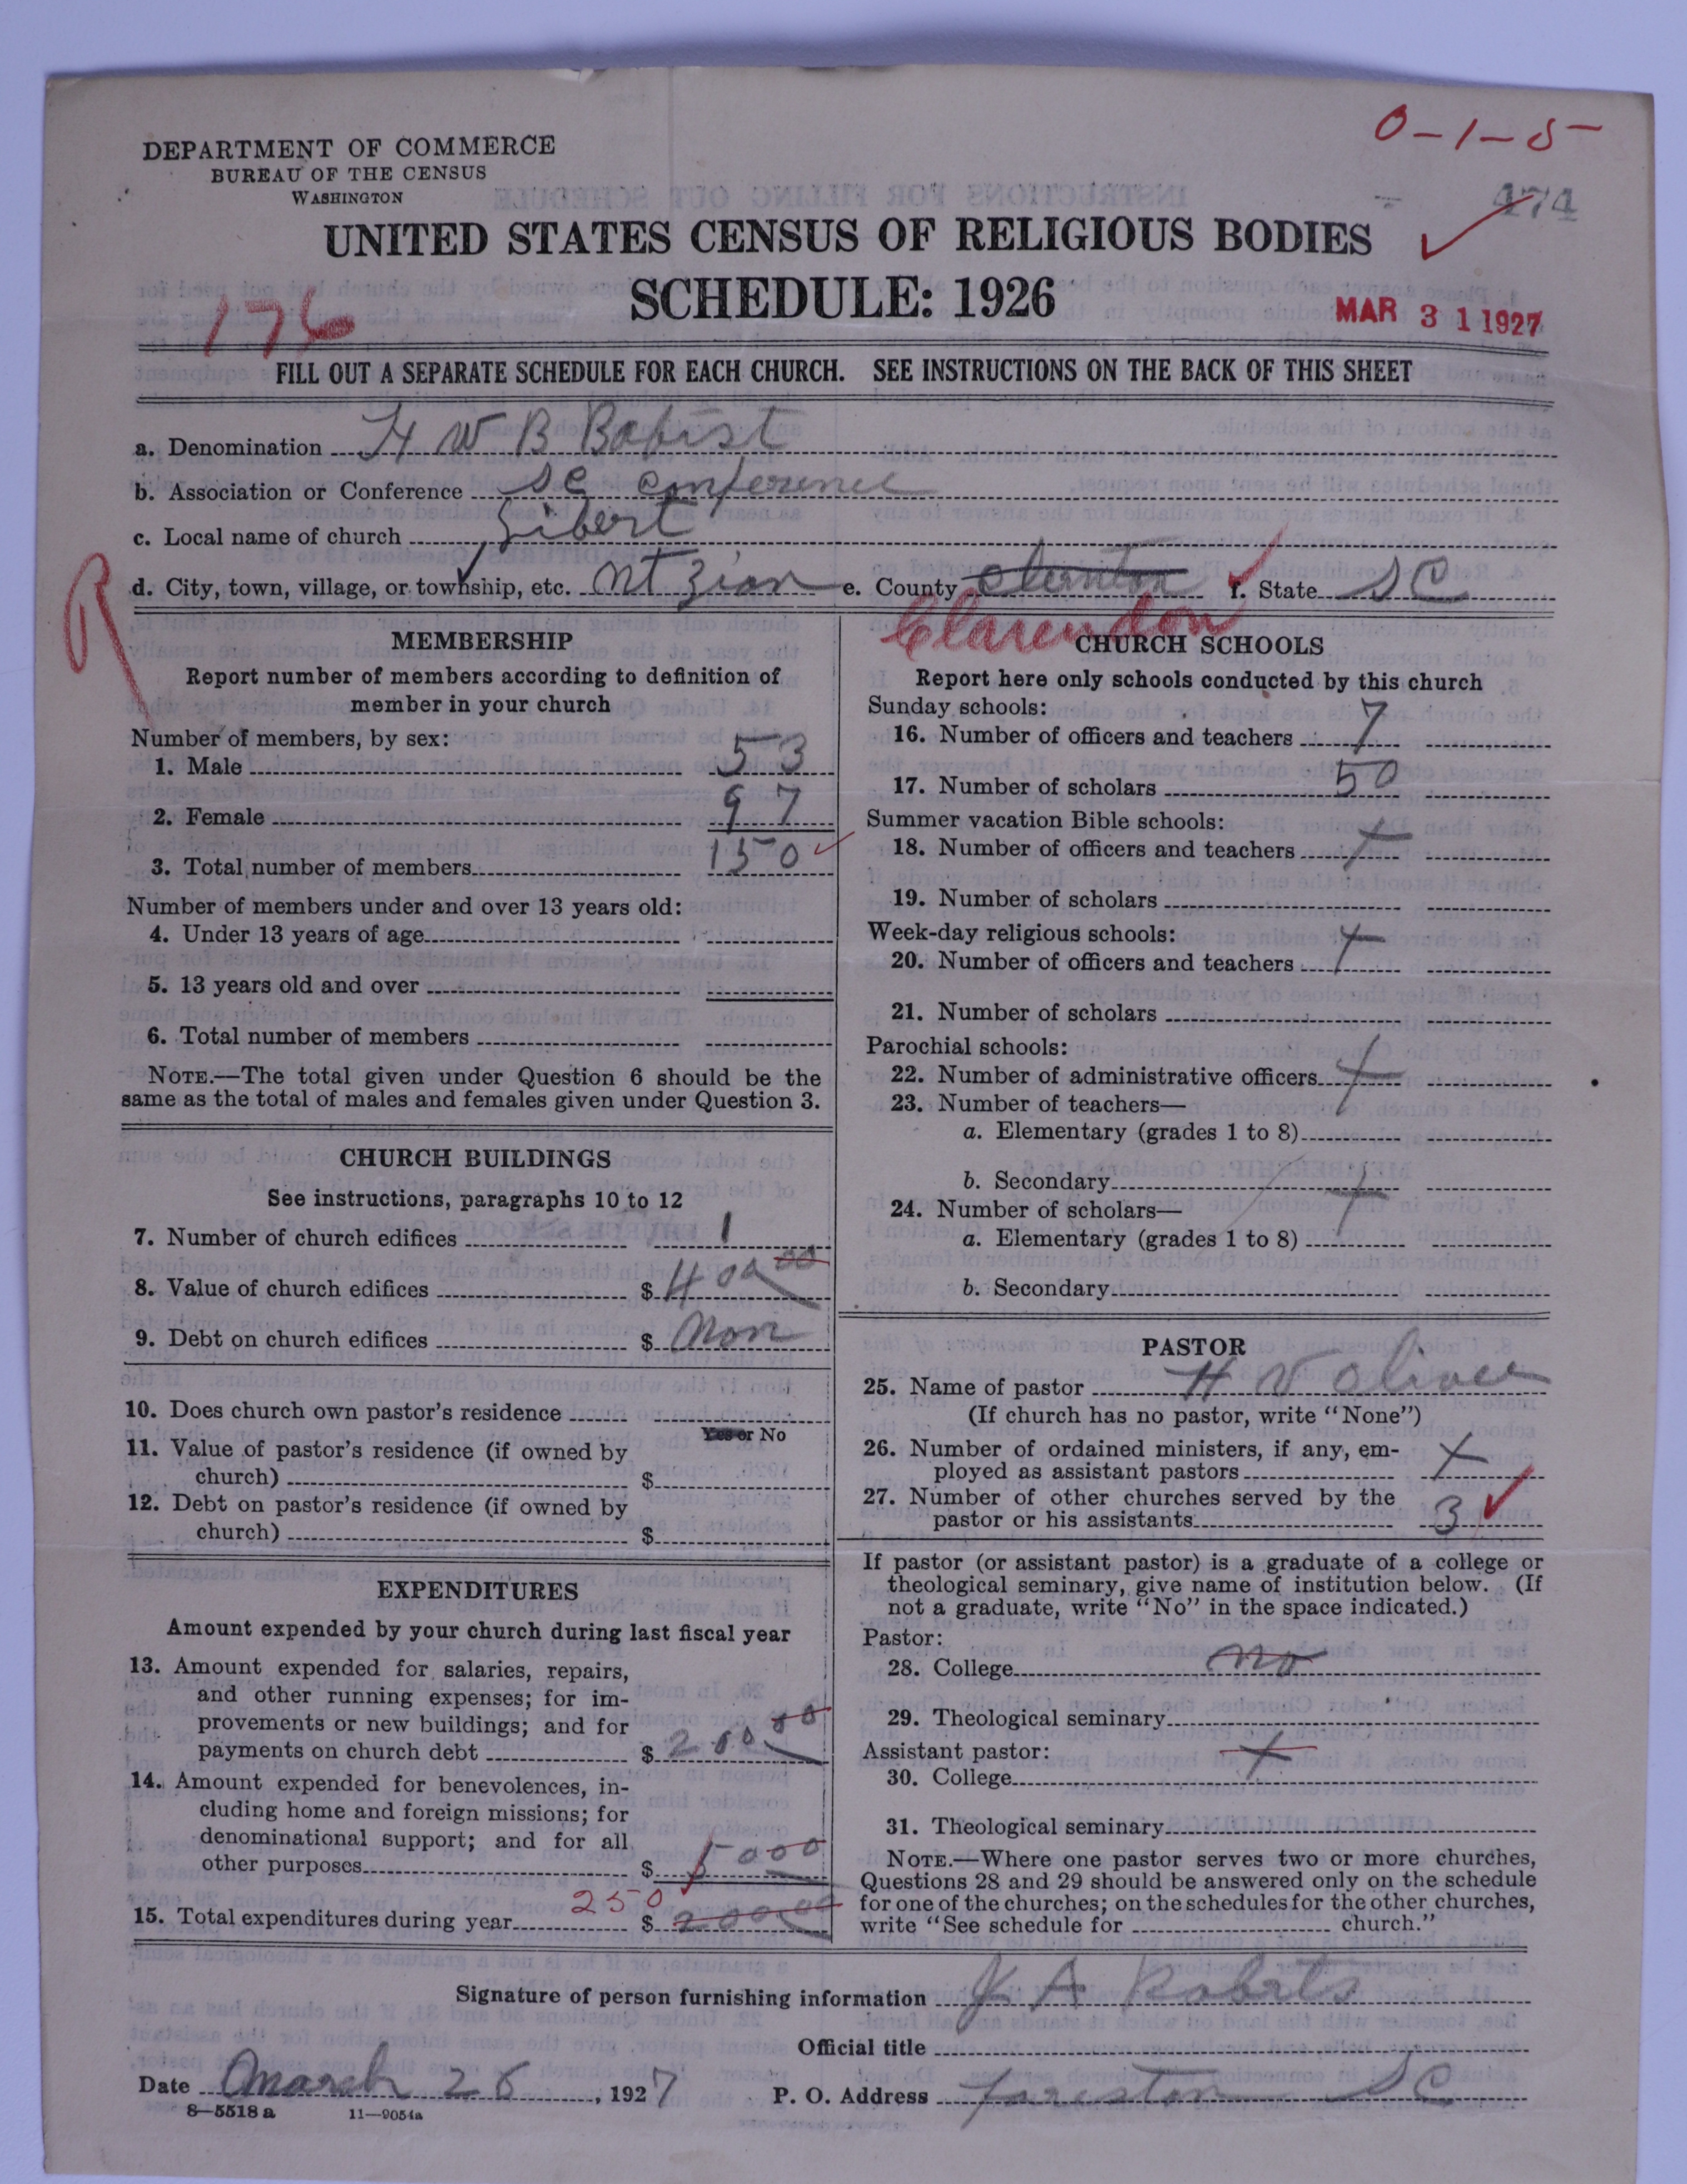 0-1-5
DEPARTMENT OF COMMERCE
BUREAU OF THE CENSUS
WASHINGTON
474
UNITED STATES CENSUS OF RELIGIOUS BODIES
SCHEDULE: 1926
176
MAR 31 1927
FILL OUT A SEPARATE SCHEDULE FOR EACH CHURCH. SEE INSTRUCTIONS ON THE BACK OF THIS SHEET
a. Denomination F W B Babtist
b. Association or Conference SC conference
c. Local name of church Gibert
d. City, town, village, or township, etc. Mt Zion e. County f. State SC
R
Clarendon
MEMBERSHIP
Report number of members according to definition of
member in your church
Number of members, by sex:
1. Male 53
2. Female 97
3. Total number of members 150
Number of members under and over 13 years old:
4. Under 13 years of age
5. 13 years old and over
6. Total number of members
NOTE.—The total given under Question 6 should be the
same as the total of males and females given under Question 3.
CHURCH BUILDINGS
See instructions, paragraphs 10 to 12
7. Number of church edifices 1
8. Value of church edifices $ 400 00
9. Debt on church edifices $ Non
10. Does church own pastor's residence
Yes or No
11. Value of pastor's residence (if owned by
church) $
12. Debt on pastor's residence (if owned by
church) $
EXPENDITURES
Amount expended by your church during last fiscal year
13. Amount expended for salaries, repairs,
and other running expenses; for im-
provements or new buildings; and for
payments on church debt $ 200 00
14. Amount expended for benevolences, in-
cluding home and foreign missions; for
denominational support; and for all
other purposes $ 50 00
250
15. Total expenditures during year $ 200 00
CHURCH SCHOOLS
Report here only schools conducted by this church
Sunday schools:
16. Number of officers and teachers 7
17. Number of scholars 50
Summer vacation Bible schools:
18. Number of officers and teachers
19. Number of scholars
Week-day religious schools:
20. Number of officers and teachers
21. Number of scholars
Parochial schools:
22. Number of administrative officers
23. Number of teachers—
a. Elementary (grades 1 to 8)
b. Secondary
24. Number of scholars—
a. Elementary (grades 1 to 8)
b. Secondary
PASTOR
25. Name of pastor H W Oliver
(If church has no pastor, write "None")
26. Number of ordained ministers, if any, em-
ployed as assistant pastors X
27. Number of other churches served by the
pastor or his assistants 3
If pastor (or assistant pastor) is a graduate of a college or
theological seminary, give name of institution below. (If
not a graduate, write "No" in the space indicated.)
Pastor:
28. College no
29. Theological seminary
Assistant pastor:
30. College
31. Theological seminary
NOTE.—Where one pastor serves two or more churches,
Questions 28 and 29 should be answered only on the schedule
for one of the churches; on the schedules for the other churches,
write "See schedule for church."
Signature of person furnishing information J A Roberts
Official title
Date March 26, 1927 P. O. Address Foreston SC
8—5518a 11—9054a